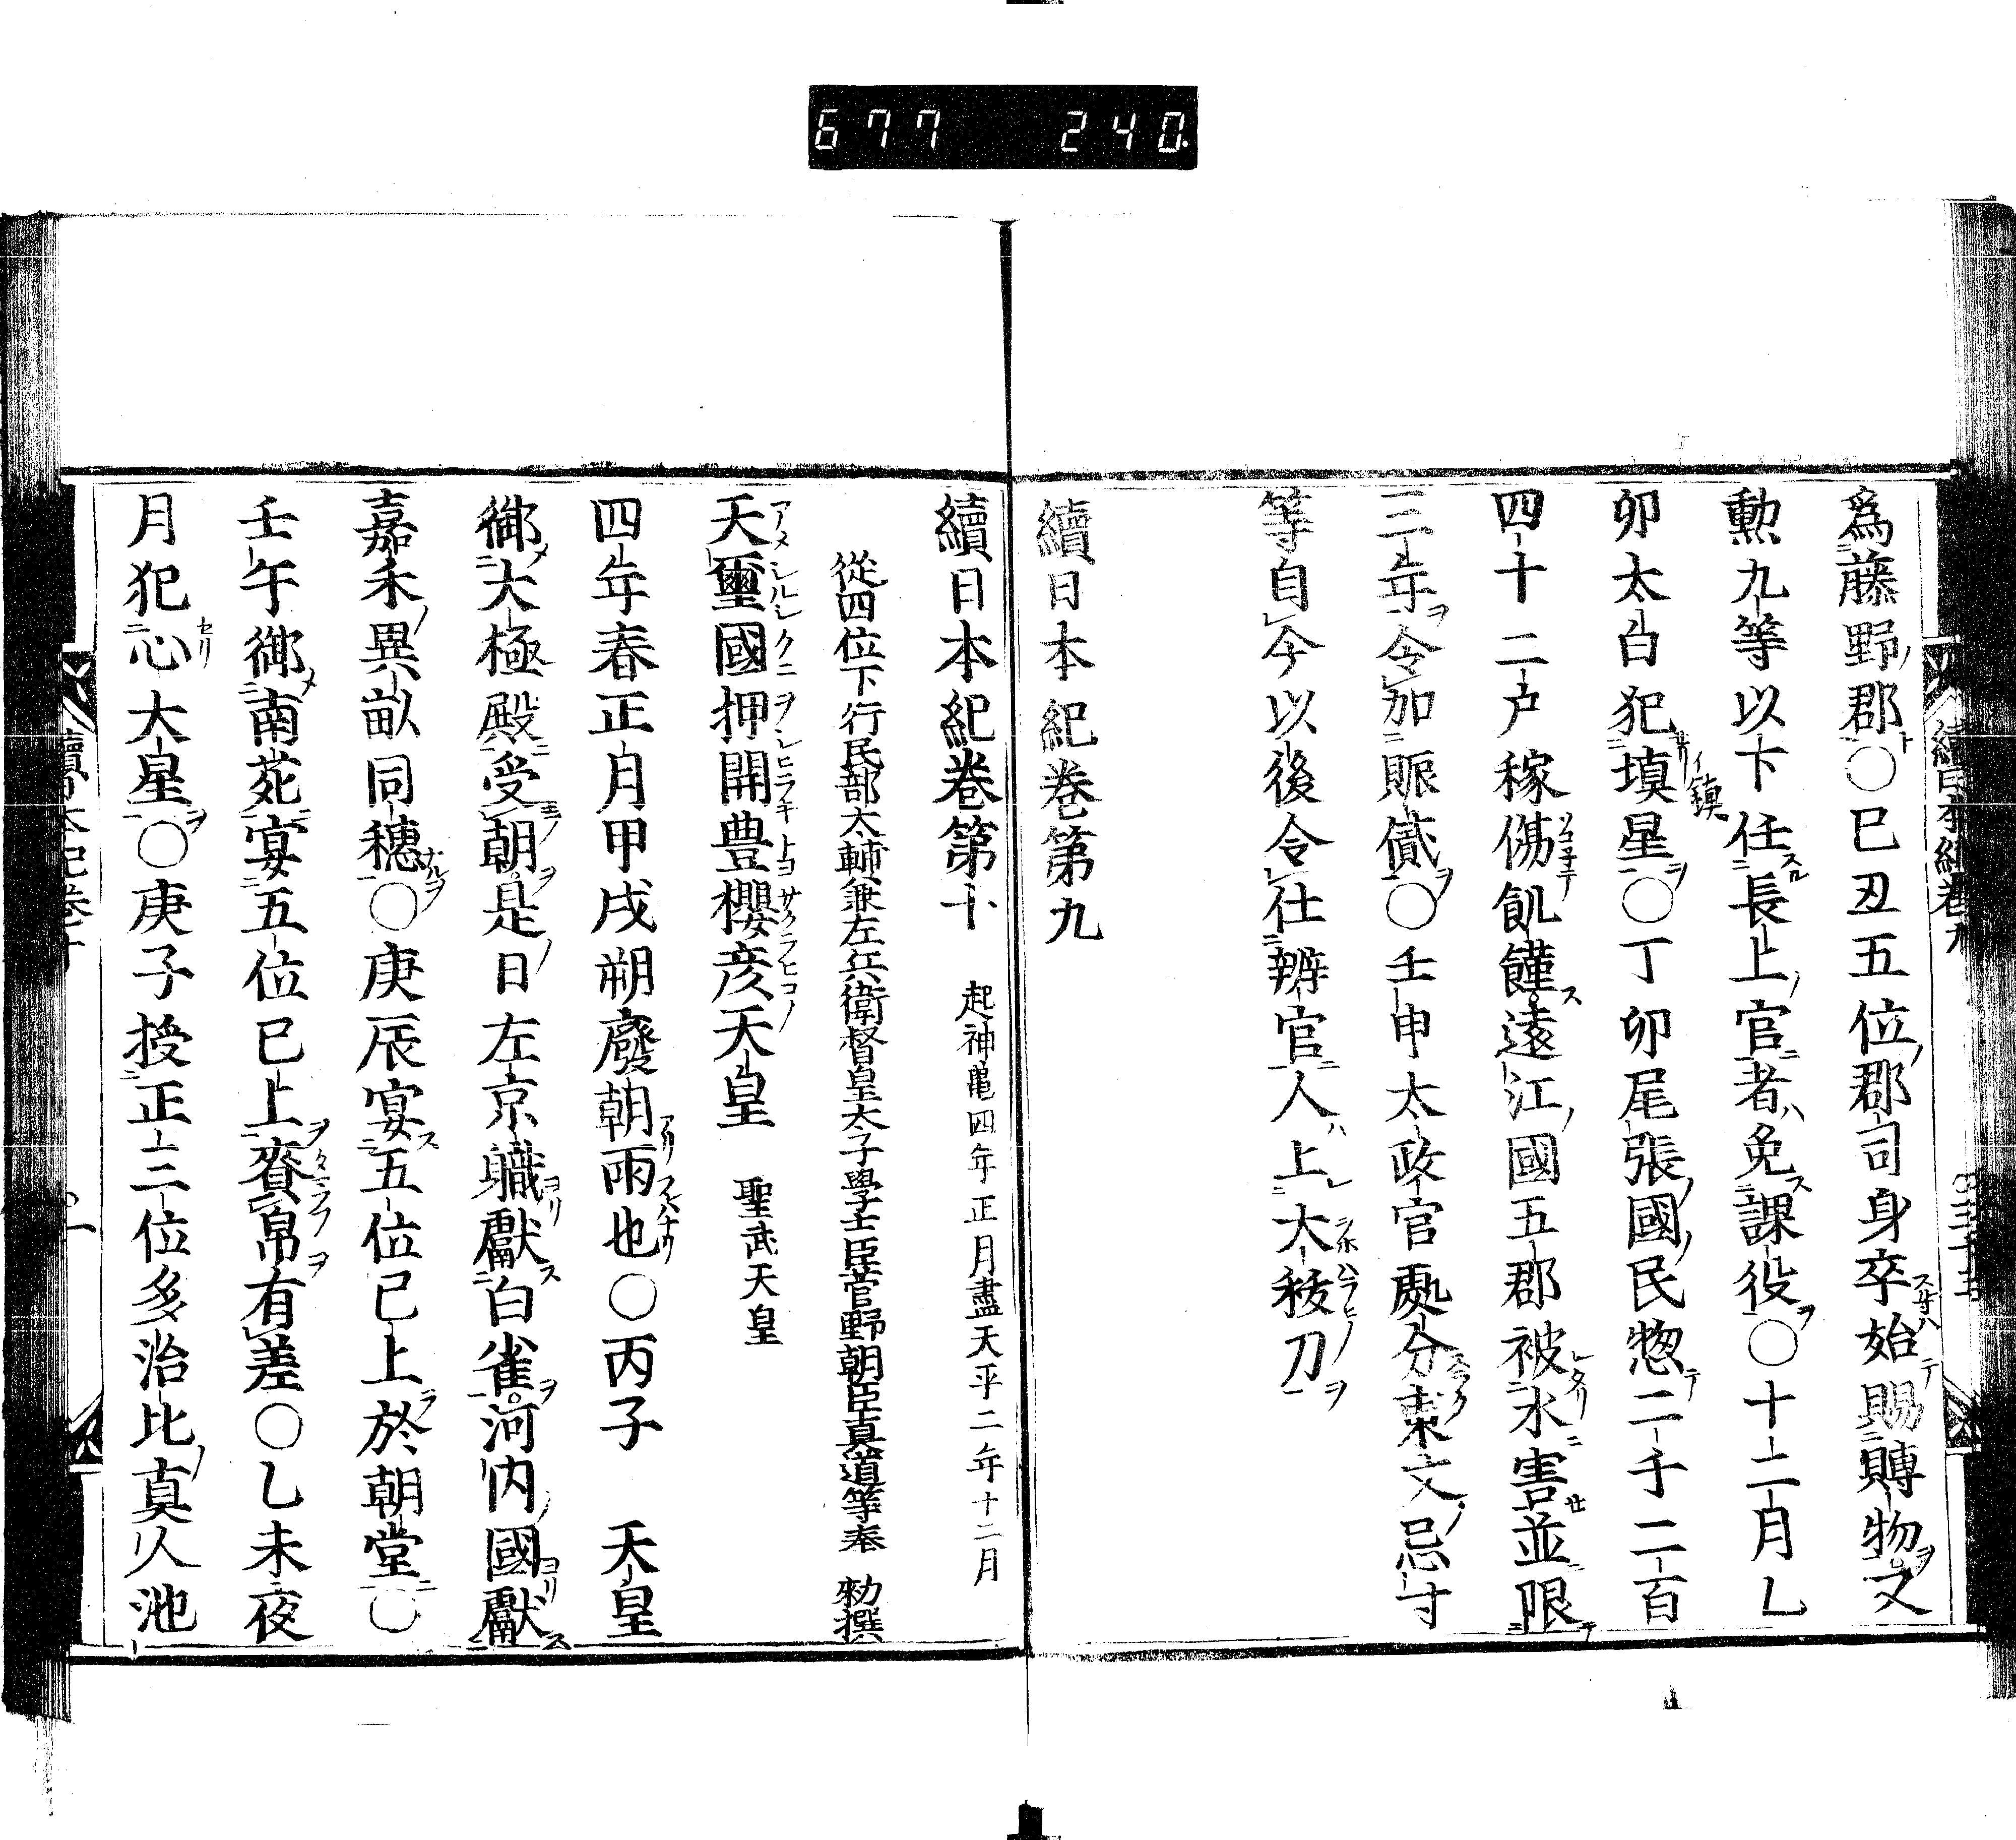 677 240
爲藤野郡○巳丑五位郡司身卒始賜賻物又
勲九等以下任長上官者免課役○十二月乙
卯太白犯填星○丁卯尾張國民惣二千二百
イ鎮
四十二戸稼傷飢饉遠江國五郡被水害並限
三年令加賑貸○壬申太政官處分東文忌寸
等自今以後令仕辨官人上大秡刀
續日本紀巻第九
續日本紀巻第十 起神亀四年正月盡天平二年十二月
從四位下行民部大輔兼左兵衛督皇太子學士臣菅野朝臣真道等奉 勑撰
天璽國押開豊櫻彦天皇 聖武天皇
アメシルシクニヲシヒラキトヨサクラヒコノ
四年春正月甲戌朔廢朝雨也○丙子 天皇
御大極殿受朝是日左京職獻白雀河内國獻
嘉禾異畝同穗○庚辰宴五位已上於朝堂○
壬午御南苑宴五位已上賚帛有差○乙未夜
月犯心大星○庚子授正三位多治比真人池
續日本紀巻十